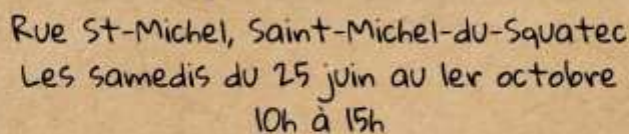 Rue St-Michel, Saint-Michel-du-Squatec
Les samedis du 25 juin au 1er octobre
10h à 15h